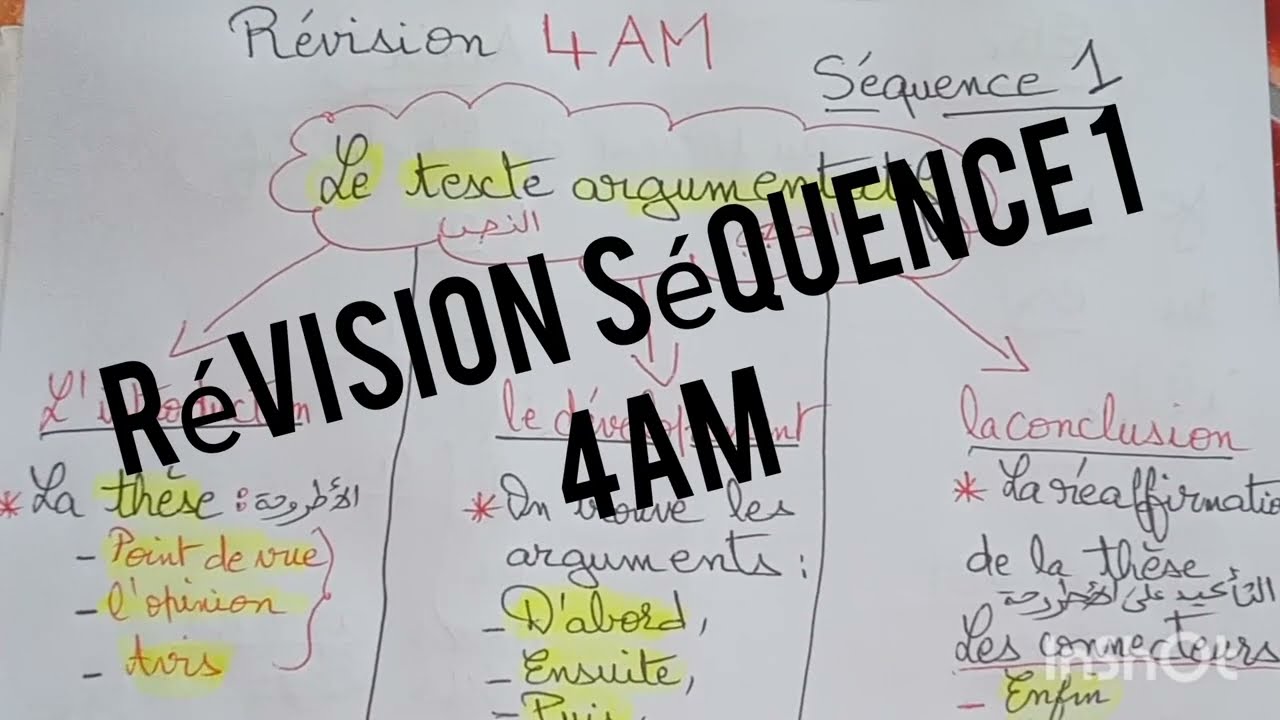 Révision 4AM
Séquence 1
Le texte argumentatif
النص الحجاجي
RéVISION SéQUENCE 1
4AM
L'introduction
* La thèse : الأطروحة
- Point de vue
- l'opinion
- Avis
le développement
* On trouve les
arguments :
- D'abord,
- Ensuite,
- Puis,
la conclusion
* La réaffirmatio
de la thèse.
التأكيد على الأطروحة
Les connecteurs
- Enfin
InShOt